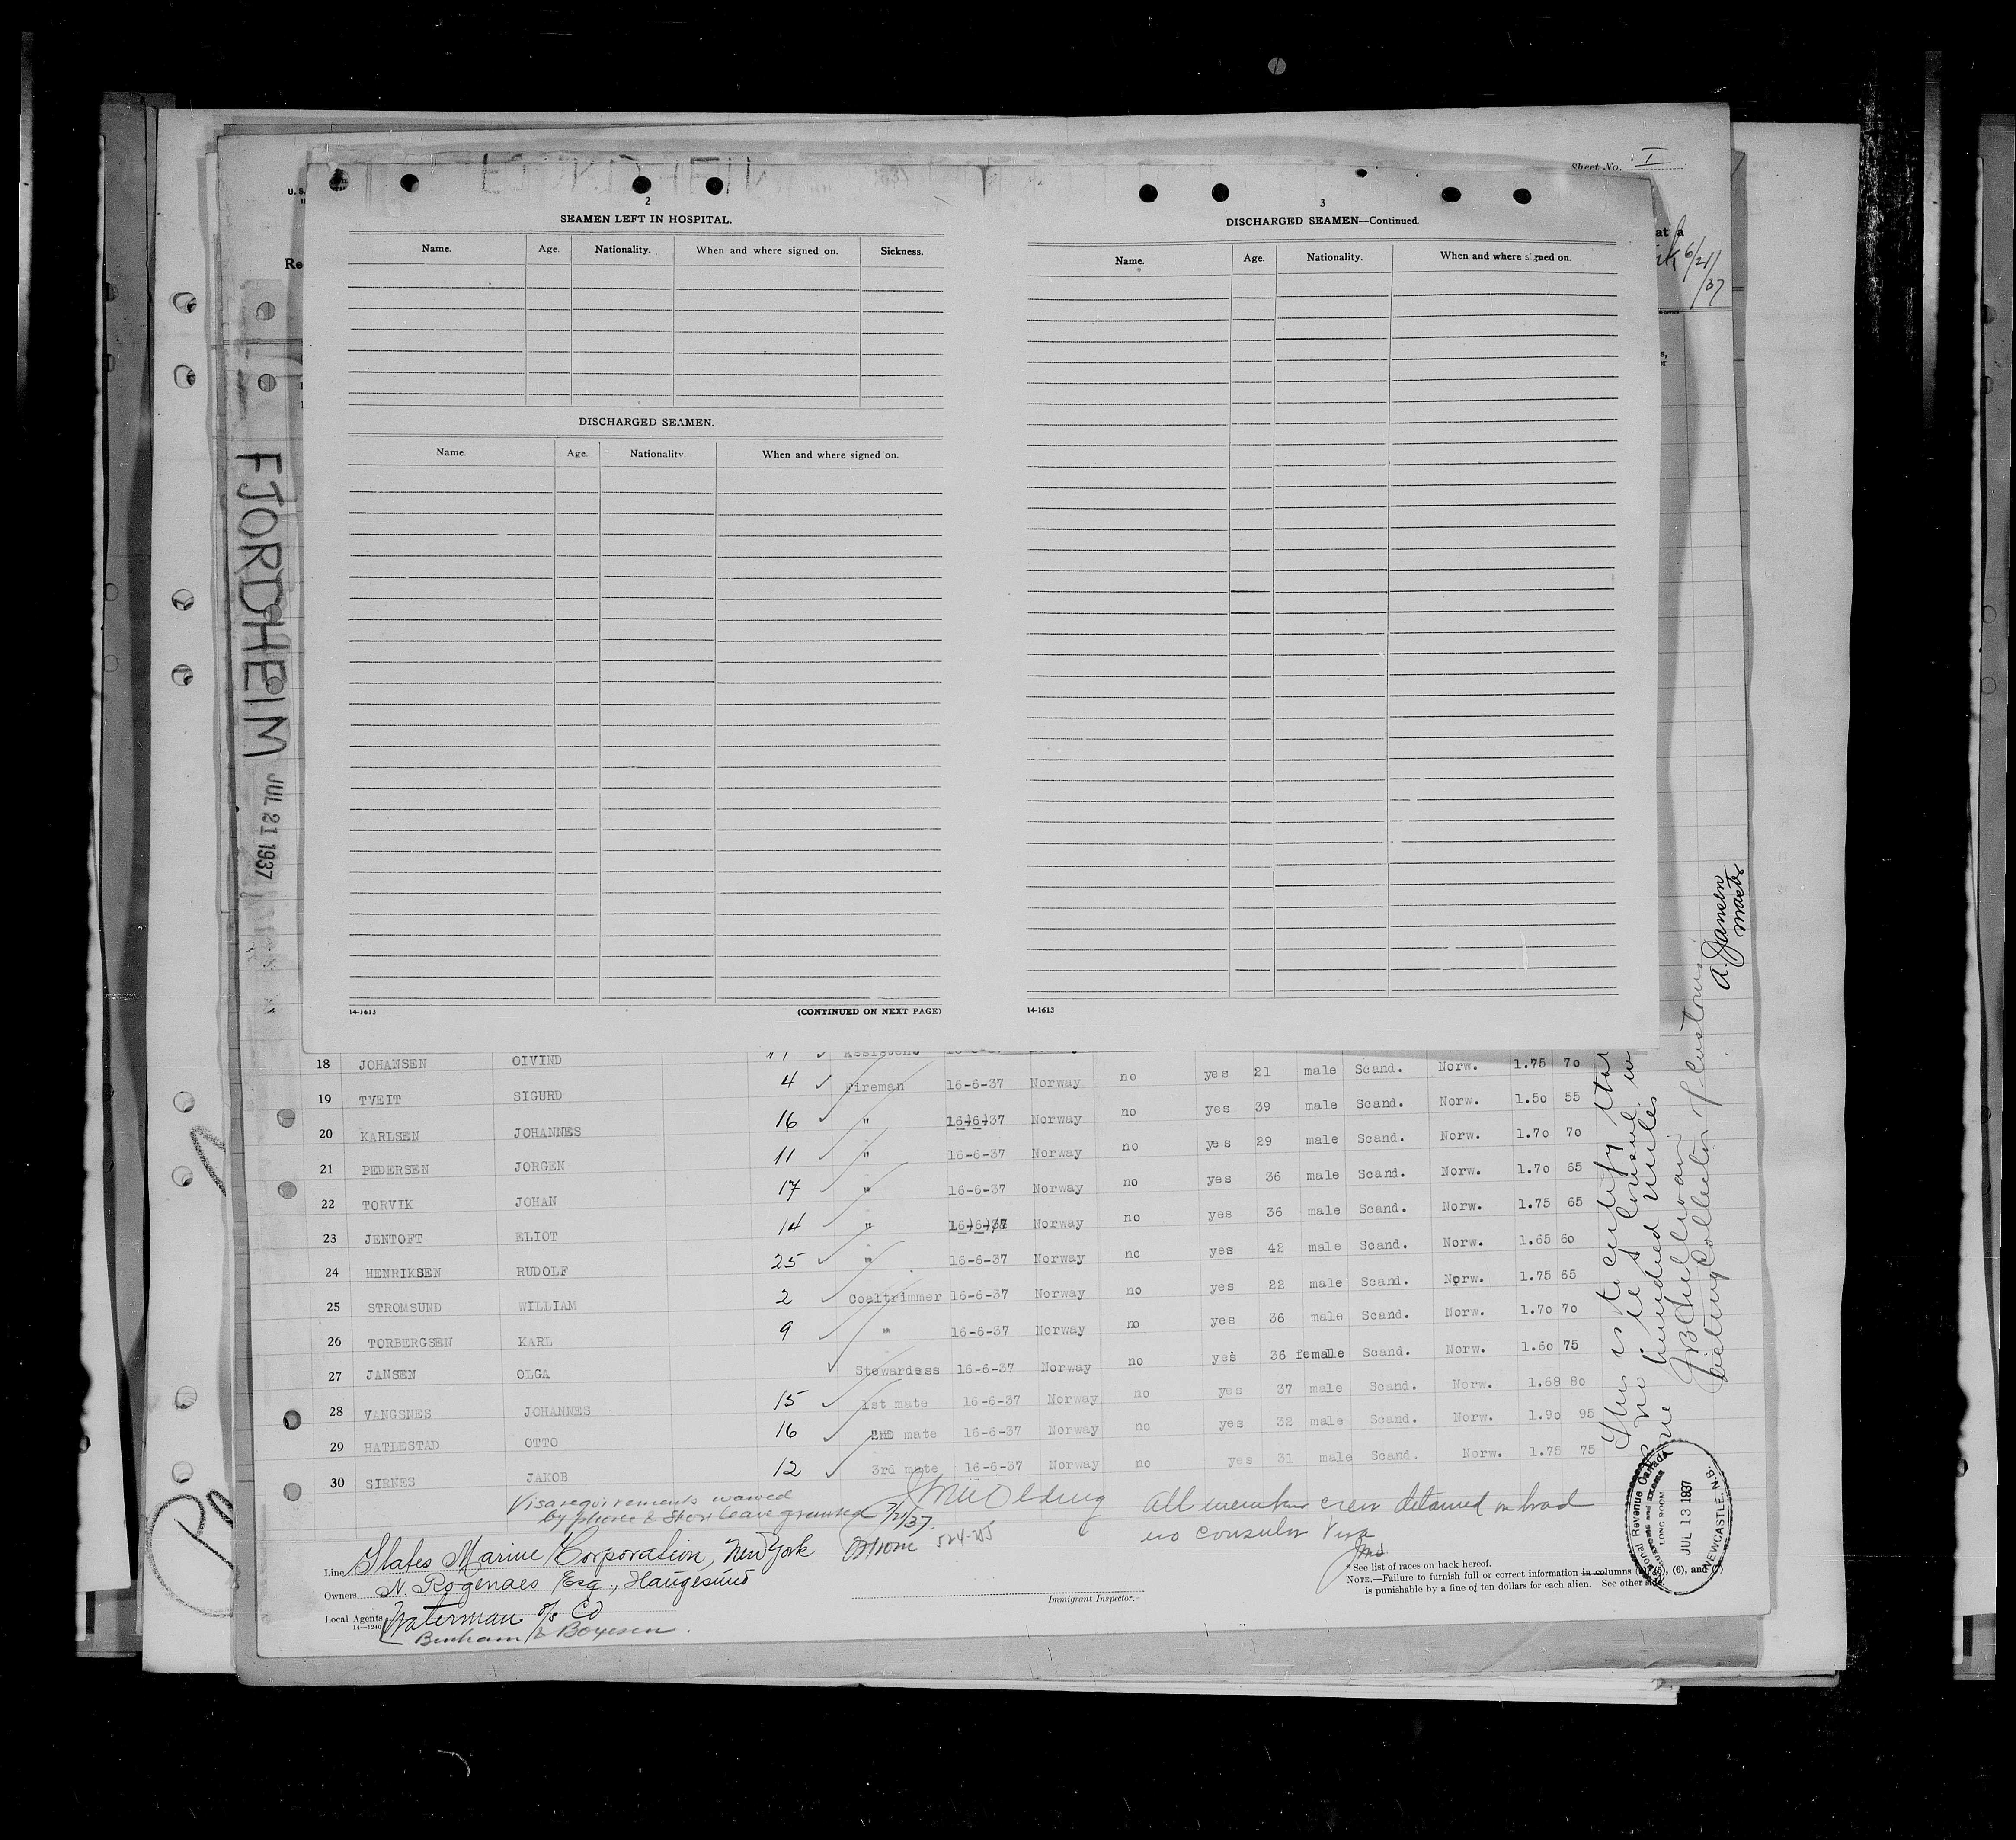 Sheet No. I
U. S.
at a
6/21/37
Re
2
SEAMEN LEFT IN HOSPITAL.
Name. Age. Nationality. When and where signed on. Sickness.
DISCHARGED SEAMEN.
Name. Age. Nationality. When and where signed on.
14-1613 (CONTINUED ON NEXT PAGE)
3
DISCHARGED SEAMEN—Continued.
Name. Age. Nationality. When and where signed on.
14-1613
FJORDHEIM JUL 21 1937
18 JOHANSEN OIVIND Assistent
19 TVEIT SIGURD 4 Fireman 16-6-37 Norway no yes 21 male Scand. Norw. 1.75 70
20 KARLSEN JOHANNES 16 " 16-6-37 Norway no yes 39 male Scand. Norw. 1.50 55
21 PEDERSEN JORGEN 11 " 16-6-37 Norway no yes 29 male Scand. Norw. 1.70 70
22 TORVIK JOHAN 17 " 16-6-37 Norway no yes 36 male Scand. Norw. 1.70 65
23 JENTOFT ELIOT 14 " 16-6-37 Norway no yes 36 male Scand. Norw. 1.75 65
24 HENRIKSEN RUDOLF 25 " 16-6-37 Norway no yes 42 male Scand. Norw. 1.65 60
25 STROMSUND WILLIAM 2 Coaltrimmer 16-6-37 Norway no yes 22 male Scand. Norw. 1.75 65
26 TORBERGSEN KARL 9 " 16-6-37 Norway no yes 36 male Scand. Norw. 1.70 70
27 JANSEN OLGA Stewardess 16-6-37 Norway no yes 36 female Scand. Norw. 1.60 75
28 VANGSNES JOHANNES 15 1st mate 16-6-37 Norway no yes 37 male Scand. Norw. 1.68 80
29 HATLESTAD OTTO 16 2nd mate 16-6-37 Norway no yes 32 male Scand. Norw. 1.90 95
30 SIRNES JAKOB 12 3rd mate 16-6-37 Norway no yes 31 male Scand. Norw. 1.75 75
Visa requirements waived
by phone & Shore leave granted 7/21/37.
All member crew detained on board
no consular Visa
Line States Marine Corporation, New York
Owners N. Rogenaes Esq., Haugesund
Local Agents Waterman S/S Co
14—1240
Benham & Boyesen.
Immigrant Inspector.
*See list of races on back hereof.
NOTE.—Failure to furnish full or correct information in columns (5), (6), and (7)
is punishable by a fine of ten dollars for each alien. See other side.
This is to certify that
there is no consul
one hundred miles
Acting Collector of Customs
A. Jansen
master
National Revenue Canada
CUSTOMS AND EXCISE
LONG ROOM
JUL 13 1937
NEWCASTLE, N.B.